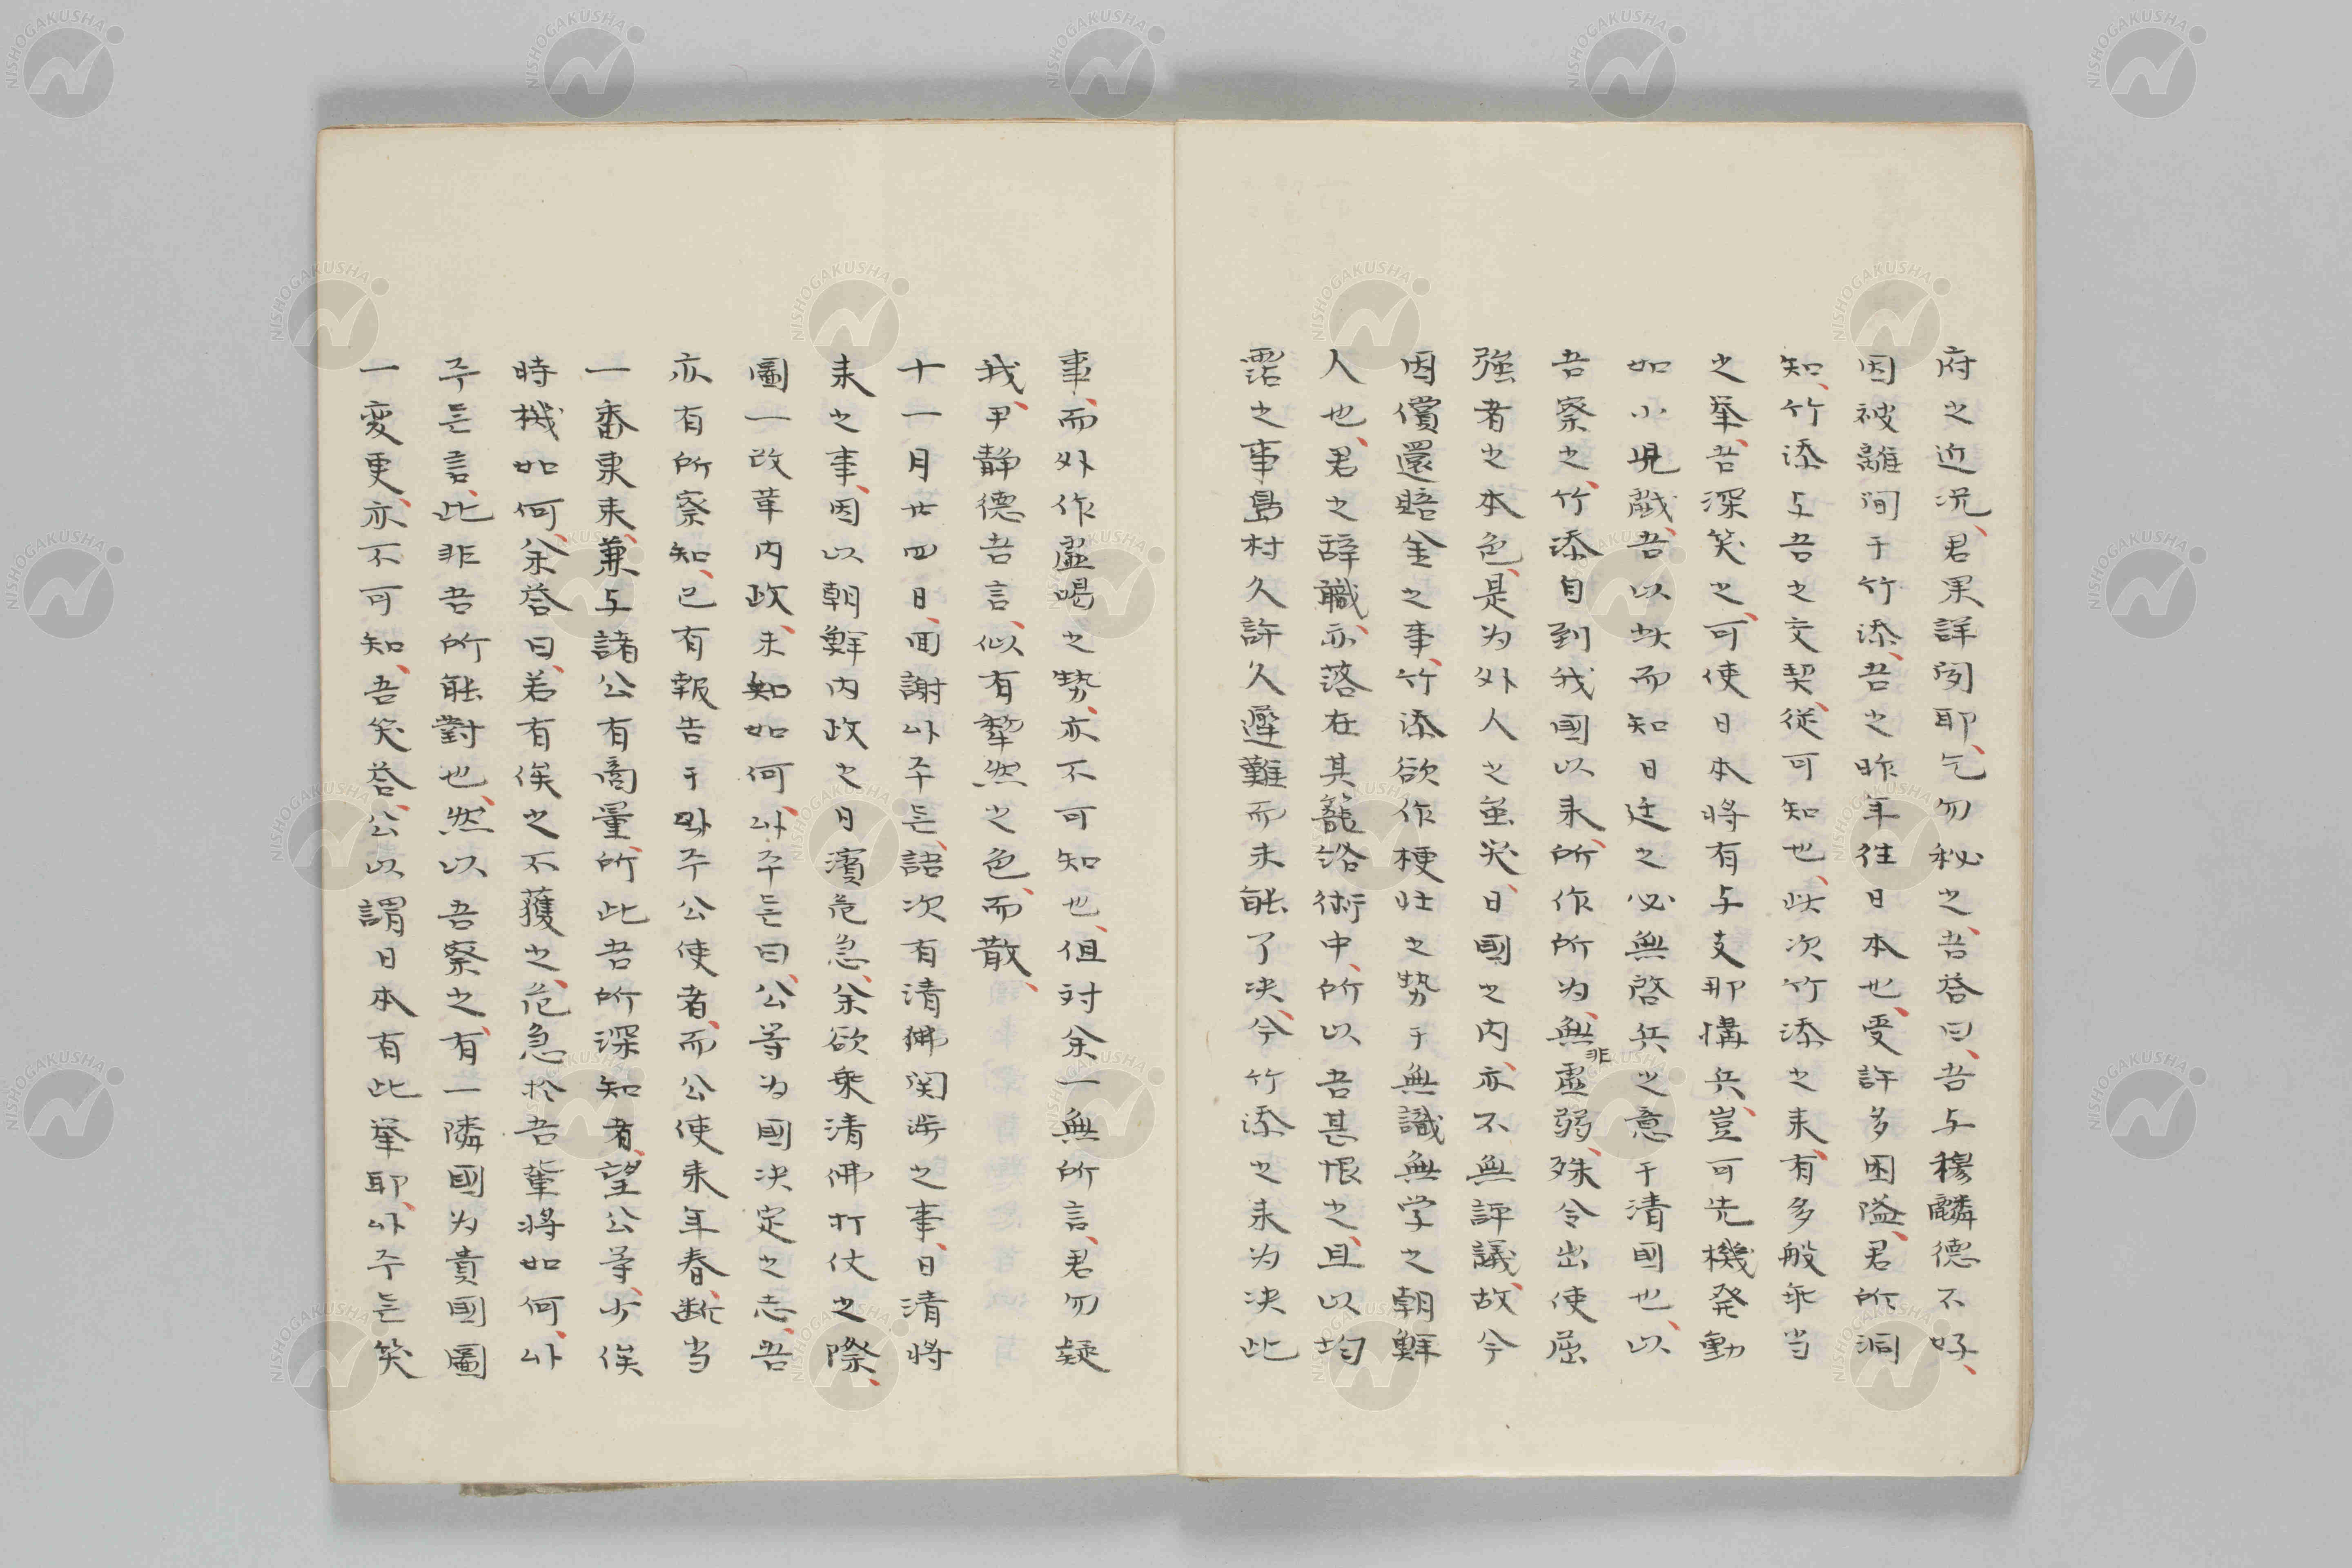 府之近況、君果詳閱耶、乞勿秘之、吾答曰、吾与穆麟德不好、
因被離间于竹添、吾之昨年往日本也、受許多困隘、君所洞
知、竹添与吾之交契、從可知也、此次竹添之来、有多般乖当
之挙、吾深笑之、可使日本将有与支那搆兵、豈可先機発動
如小児戯、吾以此而知日廷之必無啓兵之意于清國也、以
吾察之、竹添自到我國以来、所作所为、無非虚弱、殊令出使屈
強者之本色、是为外人之虽笑、日國之内、亦不無評議、故今
因償還賠金之事、竹添欲作梗壮之勢于無識無学之朝鮮
人也、君之辞職、亦落在其籠絡術中、所以吾甚恨之、且以均
霑之事島村久許久遷難而未能了决、今竹添之来为决此
事、而外作虚喝之勢、亦不可知也、但対余一無所言、君勿疑
我、尹静德吾言、似有犂然之色、而散、
十一月廿四日、回謝사주든、語次有清狒関渉之事、日清将
来之事、因以朝鮮内政之日濱危急、余欲乗清佛打仗之際、
圖一改革内政、未知如何、사주든曰、公等为國决定之志、吾
亦有所察知、已有報告于와주公使者、而公使来年春、断当
一番東来、兼与諸公有商量、所此吾所深知者、望公等、少俟
時機如何、余答曰、若有俟之不獲之、危急於吾輩将如何、사
주든言、此非吾所能對也、然以吾察之、有一隣國为貴國圖
一変更、亦不可知、吾笑答、公以謂日本有此挙耶、사주든笑
NISHOGAKUSHA